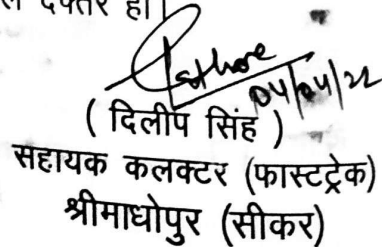 दफ्तर हो।
Rathore
04/04/22
( दिलीप सिंह )
सहायक कलक्टर (फास्टट्रेक)
श्रीमाधोपुर (सीकर)